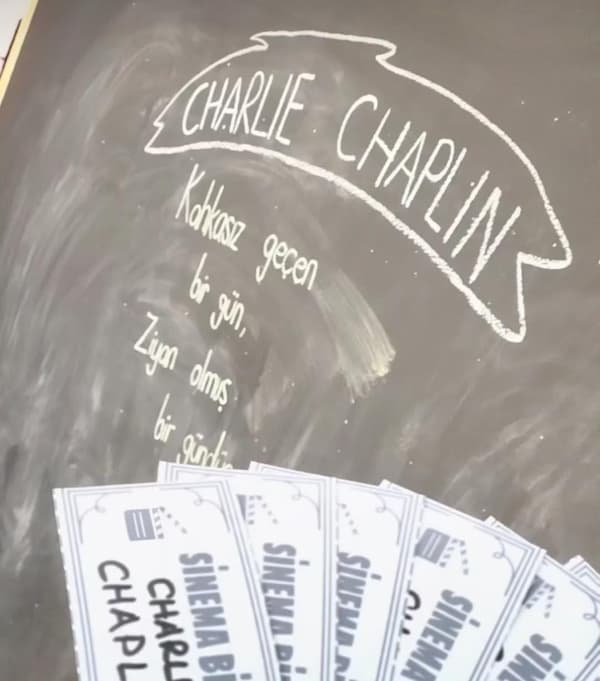 CHARLIE CHAPLIN
Kahkasız geçen
bir gün,
Ziyan olmuş
bir gündür
SİNEMA Bİ
CHARLI
CHAPL
SİNEMA Bİ
SİNEMA Bİ
SİNEMA
SİNEM